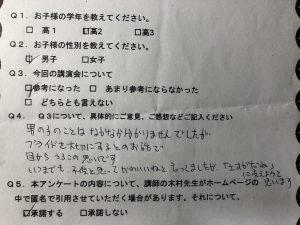 Q1. お子様の学年を教えてください。
□ 高1 ☑高2 □高3
Q2. お子様の性別を教えてください。
☑男子 □女子
Q3. 今回の講演会について
☑参考になった □ あまり参考にならなかった
□ どちらとも言えない
Q4. Q3について、具体的にご意見、ご感想などご記入ください
男の子のことは なかなか分かりませんでしたが
プライドを大切にするとのお話で
目からうろこの思いです
いつまでも、子供と思って かわいいねと 言ってしまうが「
に変えようと
思います
Q5. 本アンケートの内容について、講師の木村先生がホームページの
中で匿名で引用させていただく場合があります。それについて、
☑承諾する □承諾しない